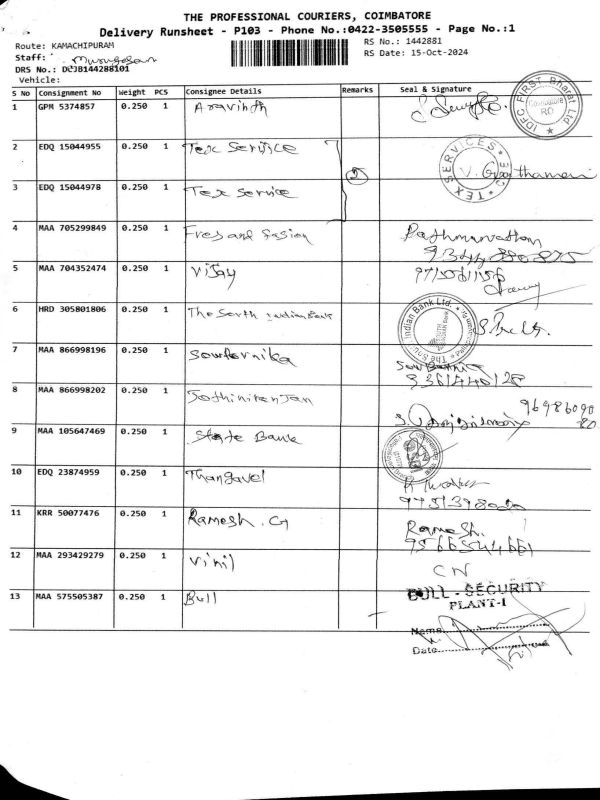 THE PROFESSIONAL COURIERS, COIMBATORE
Delivery Runsheet - P103 - Phone No.:0422-3505555 - Page No.:1
Route: KAMACHIPURAM
RS No.: 1442881
Staff: Murugesan
RS Date: 15-Oct-2024
DRS No.: DCJB144288101
Vehicle:
S No Consignment No Weight PCS Consignee Details Remarks Seal & Signature
1 GPM 5374857 0.250 1 Aravinth
IDFC FIRST Bharat Ltd Coimbatore RO
2 EDQ 15044955 0.250 1 Tex Service
TEX SERVICES
3 EDQ 15044978 0.250 1 Tex Service 2
4 MAA 705299849 0.250 1
5 MAA 704352474 0.250 1 Vijay
6 HRD 305801806 0.250 1 The South Indian Bank
The South Indian Bank Ltd.
7 MAA 866998196 0.250 1 Sowfernika
8 MAA 866998202 0.250 1 Jothiniranjan
9 MAA 105647469 0.250 1 State Bank
10 EDQ 23874959 0.250 1 Thangavel
11 KRR 50077476 0.250 1 Ramesh. G Ramesh.
12 MAA 293429279 0.250 1 Vinil
CN
13 MAA 575505387 0.250 1 Bull
BULL - SECURITY
PLANT-I
Name
Date